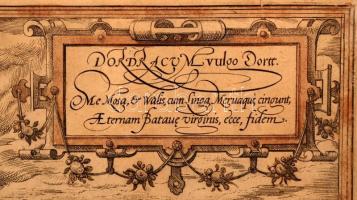 DORDRACVM vulgo Dortt.
Me Mosa, & Walis, cum Linga, Meruaque, cingunt,
Æternam Bataue virginis, ecce, fidem.